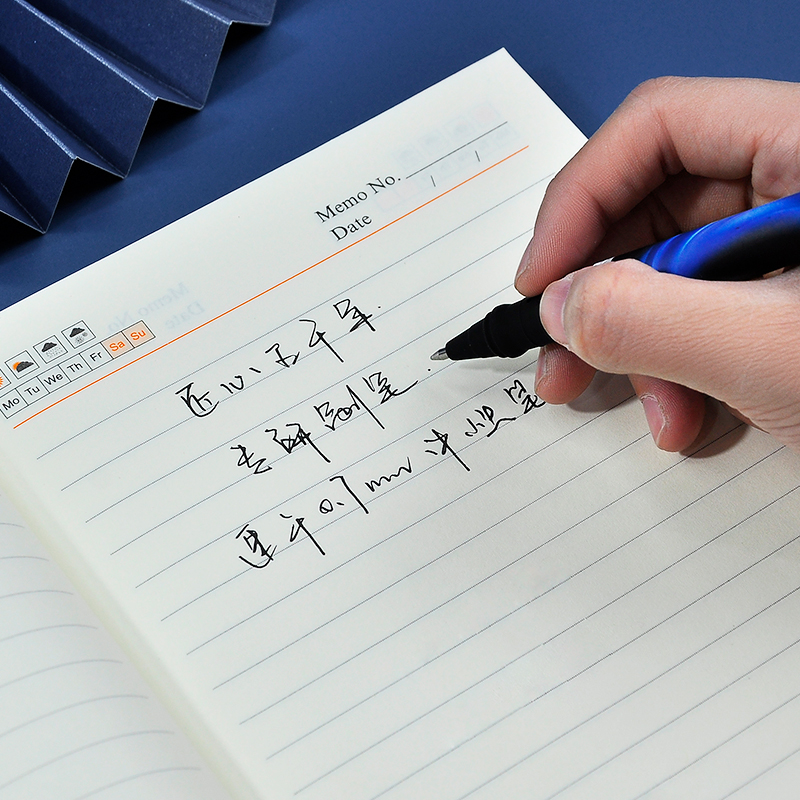 Memo No.
Date / /
Mo Tu We Th Fr Sa Su
匠心
专研制笔.
0.7mm 中性笔